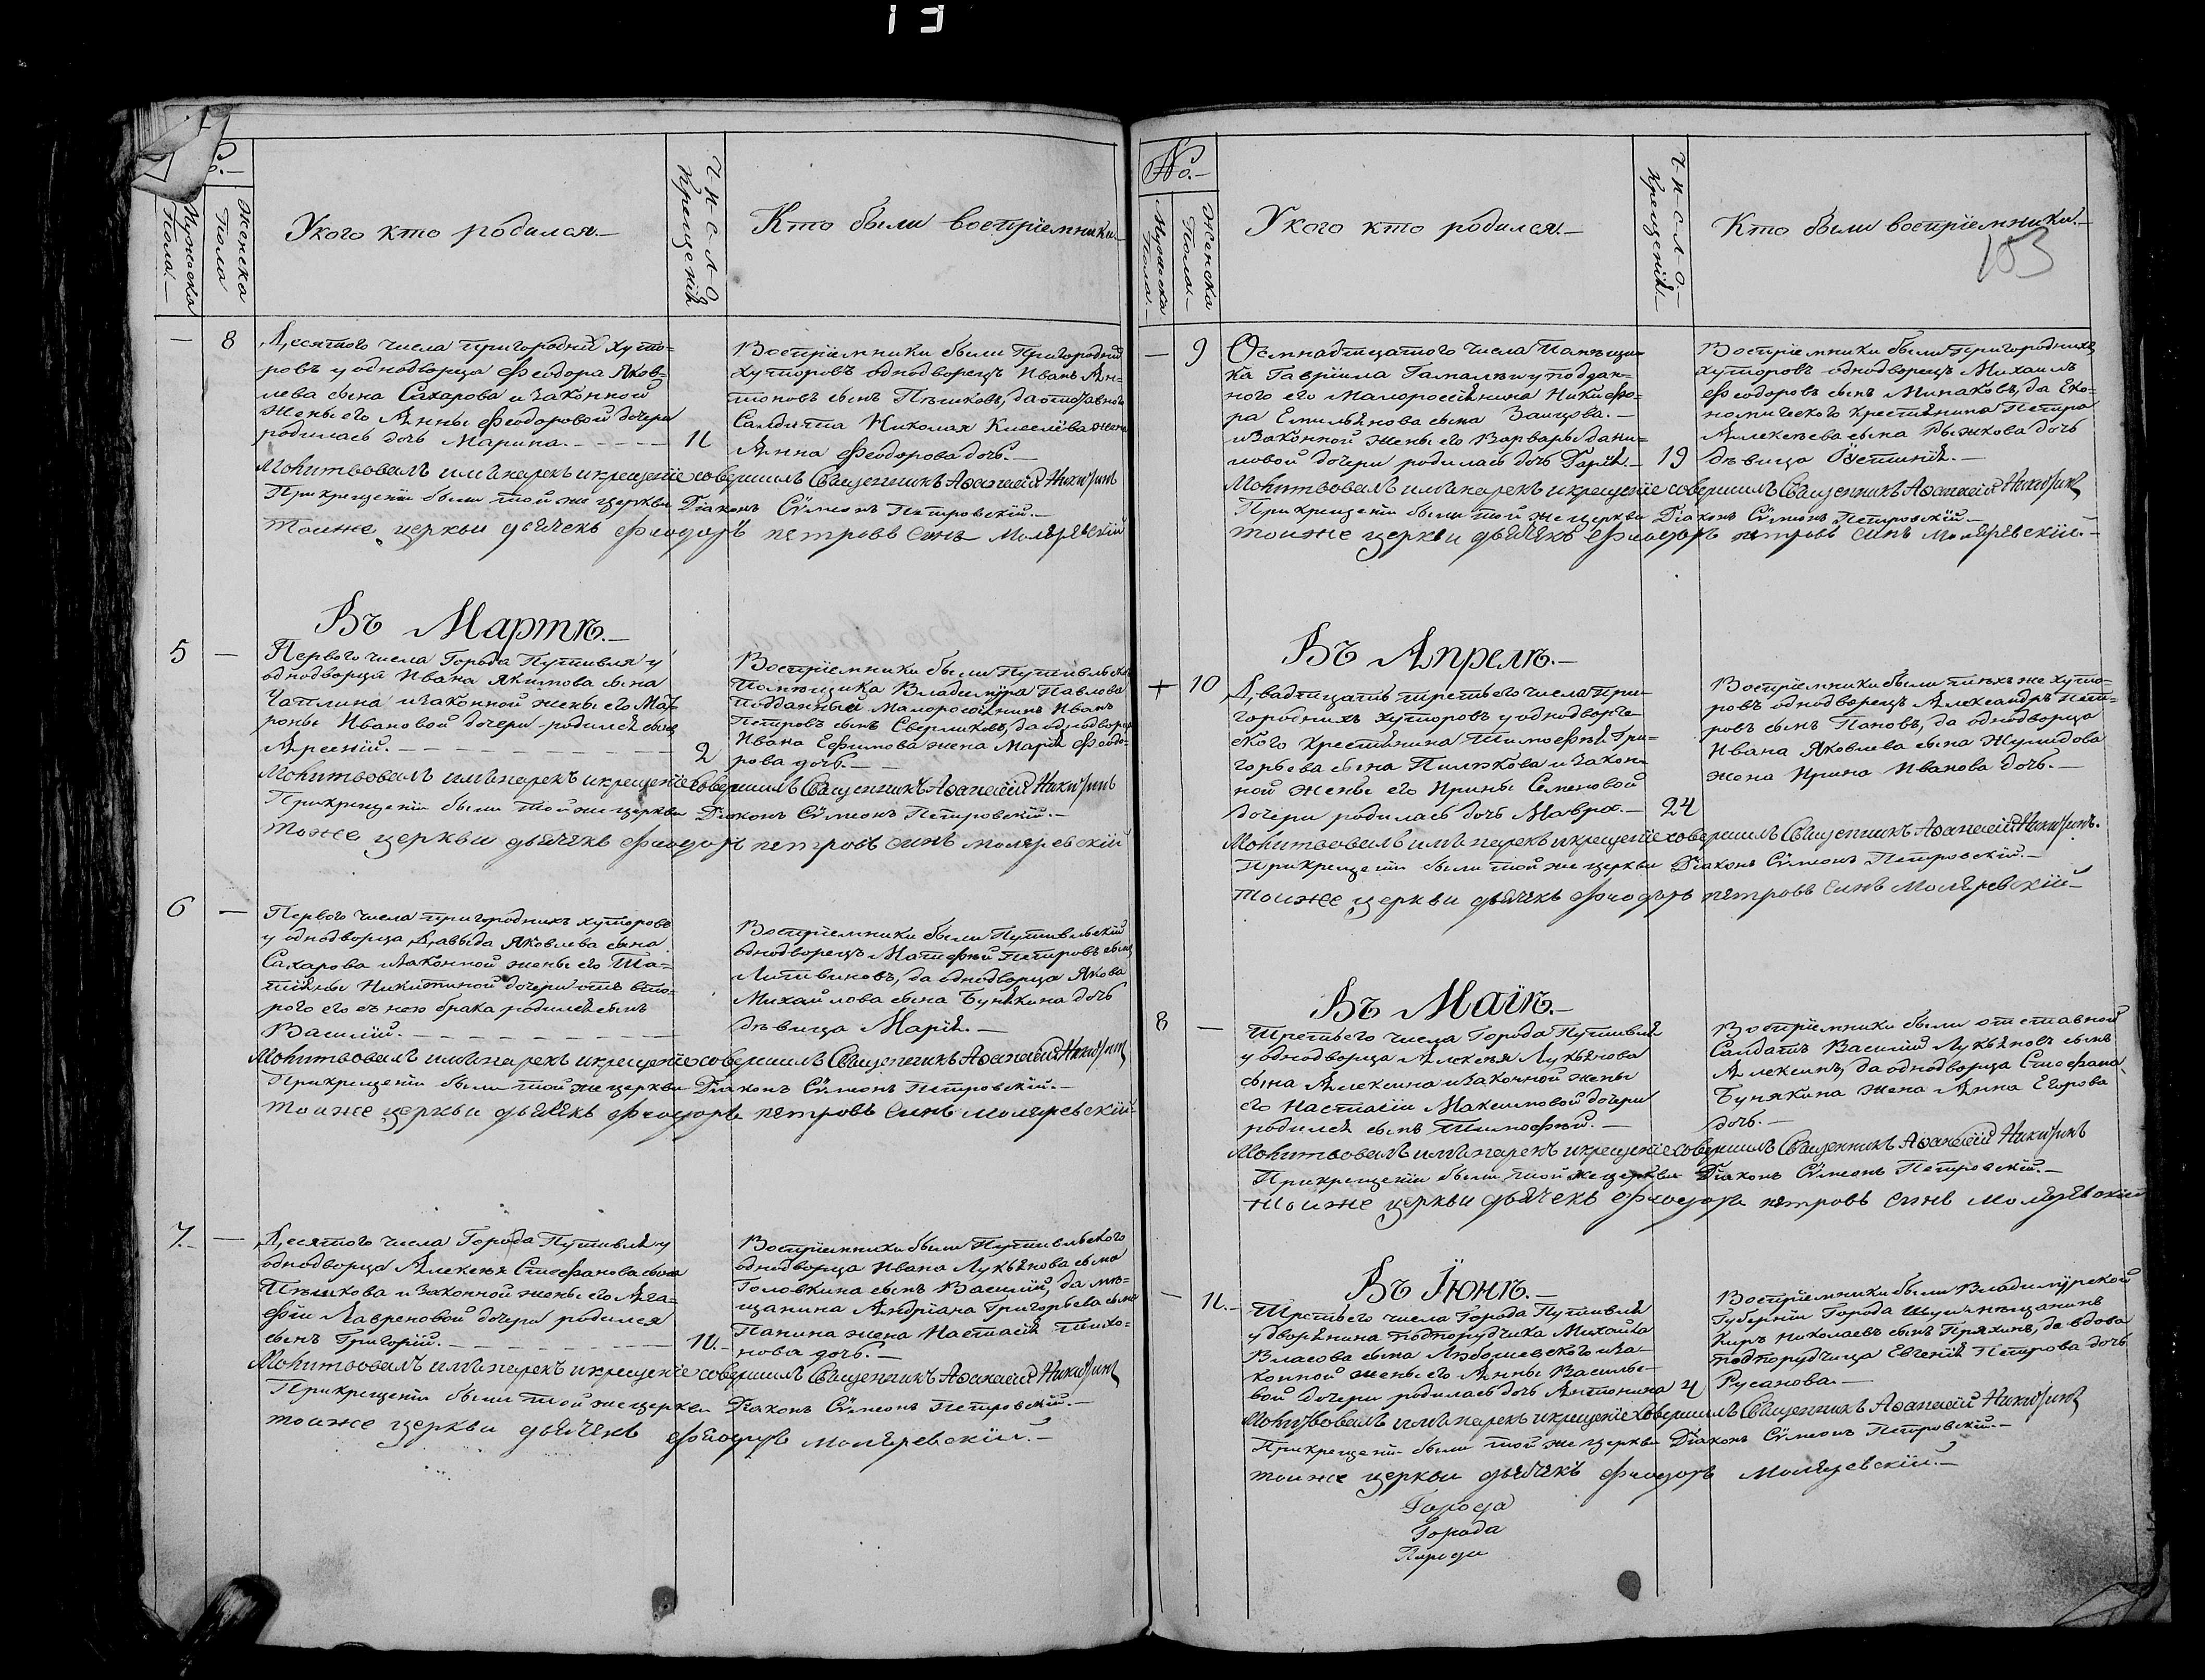 13
No.
Мужеска Пола.
Женска Пола
У кого кто родился.
Ч-и-с-л-о Крещенiя
Кто были воспрiемники.
— 8
Десятого числа пригородних хуто=
ровъ у однодворца Феодора Яков=
лева сына Сахарова и законной
жены его Анны Феодоровой дочери
родилась дочь Марина. 11
Воспрiемники были Пригородних
хуторовъ однодворецъ Иванъ Ан=
тоновъ сынъ Пешковъ, да отставного
Салдата Николая Киселёва жена
Анна Феодорова дочь.
Молитвовалъ имя нарекъ и крещенiе совершилъ Священникъ Афанасiй Никитинъ
При крещенiи были той же церкви Дiаконъ Сѵмеонъ Петровскiй.
тоиже церкви дьячекъ Фиодоръ петровъ синъ Моляревскiй
Въ Мартѣ.
5 —
Первого числа Города Путивля у
однодворца Ивана Якимова сына
Чаплина и законной жены его Мат=
роны Ивановой дочери родился сынъ
Арсенiй. 2
Воспрiемники были Путивльского
Помещика Владимiра Павлова
подданный Малоросiянинъ Иванъ
Петровъ сынъ Сверликовъ, да однодворца
Ивана Ефимова жена Марiя Феодо=
рова дочь.
Молитвовалъ имя нарекъ и крещенiе совершилъ Священникъ Афанасiй Никитинъ
При крещенiи были той же церкви Дiаконъ Сѵмеонъ Петровскiй.
тоже церкви дьячекъ Фиодоръ петровъ синъ моляревскiй
6 —
Первого числа пригородних хуторовъ
у однодворца Давыда Яковлева сына
Сахарова и законной жены его Та=
тiяны Никитиной дочери отъ вто=
рого его съ нею брака родился сынъ
Василiй.
Воспрiемники были Путивльскiй
однодворецъ Матфей Петровъ сынъ
Литвиновъ, да однодворца Якова
Михайлова сына Бунякина дочь
девица Марiя.
Молитвовалъ имя нарекъ и крещенiе совершилъ Священникъ Афанасiй Никитинъ
При крещенiи были той же церкви Дiаконъ Сѵмеонъ Петровскiй.
тоиже церкви дьячекъ Фиодоръ петровъ синъ моляревскiй
7. —
Десятого числа Города Путивля у
однодворца Алексея Стефанова сына
Пешкова и законной жены его Ага=
фiи Лавреновой дочери родился
сынъ Григорiй. 10.
Воспрiемники были Путивльского
однодворца Ивана Лукьянова сына
Головкина сынъ Василiй, да ме=
щанина Андрiана Григорьева сына
Панина жена Настасiя Тихо=
нова дочь.
Молитвовалъ имя нарекъ и крещенiе совершилъ Священникъ Афанасiй Никитинъ
При крещенiи были той же церкви Дiаконъ Сѵмеонъ Петровскiй.
тоиже церкви дьячекъ Фиодоръ моляревскiй.
No.
Мужеска Пола.
Женска Пола.
У кого кто родился.
Ч-и-с-л-о. Крещенiя.
Кто были воспрiемники.
183
— 9
Осмнадцатого числа Помещи=
ка Гаврiила Гамалеи у поддан=
ного его Малоросiянина Никифо=
ра Емильянова сына Заицова.
и законной жены его Варвары Дани=
ловой дочери родилась дочь Дарiя. 19
Воспрiемники были Пригородних
хуторовъ однодворецъ Михаилъ
Феодоровъ сынъ Минаковъ, да Еко=
номического Крестьянина Петра
Алексеева сына Рыжкова дочь
девица Устинiя.
Молитвовалъ имя нарекъ и крещенiе совершилъ Священникъ Афанасiй Никитинъ
При крещенiи были той же церкви Дiаконъ Сѵмеонъ Петровскiй
тоиже церкви дьячекъ Фиодоръ петровъ синъ моляревскiй.
Въ Апрелѣ.
+ 10
Двадцать третьего числа при=
городнихъ хуторовъ у однодворче=
ского Крестьянина Тимофея Гри=
горьева сына Пижкова и закон=
ной жены его Ирины Семеновой
дочери родилась дочь Мавра. 24
Воспрiемники были техъ же хуто=
ровъ однодворецъ Александръ Пет=
ровъ сынъ Пановъ, да однодворца
Ивана Яковлева сына Жулидова
жена Ирина Иванова дочь.
Молитвовалъ имя нарекъ и крещенiе совершилъ Священникъ Афанасiй Никитинъ.
При крещенiи были той же церкви Дiаконъ Сѵмеонъ Петровскiй.
тоиже церкви дьячекъ Фиодоръ петровъ синъ моляревскiй
Въ Маiѣ.
8 —
Третьего числа Города Путивля
у однодворца Алексея Лукьянова
сына Алехина и законной жены
его Настасiи Максимовой дочери
родился сынъ Тимофей.
Воспрiемники были отставной
Салдатъ Василiй Лукьяновъ сынъ
Алехинъ, да однодворца Стефана
Бунякина жена Анна Егорова
дочь.
Молитвовалъ имя нарекъ и крещенiе совершилъ Священникъ Афанасiй Никитинъ
При крещенiи были той же церкви Дiаконъ Сѵмеонъ Петровскiй.
тоиже церкви дьячекъ Фиодоръ петровъ синъ моляревскiй
Въ Iюнѣ.
— 11.
Третьего числа Города Путивля
у дворянина подпорудчика Михайла
Власова сына Любошевского и за=
конной жены его Анны Василье=
вой дочери родилась дочь Антонина 4
Воспрiемники были Владимiрской
Губернiи Города Шуи мещанинъ
Киръ Николаевъ сынъ Пряхинъ, да вдова
подпорудчица Евгенiя Петрова дочь
Русанова.
Молитвовалъ имя нарекъ и крещенiе совершилъ Священникъ Афанасiй Никитинъ
При крещенiи были той же церкви Дiаконъ Сѵмеонъ Петровскiй.
тоиже церкви дьячекъ Фиодоръ Моляревскiй.
Города
Города